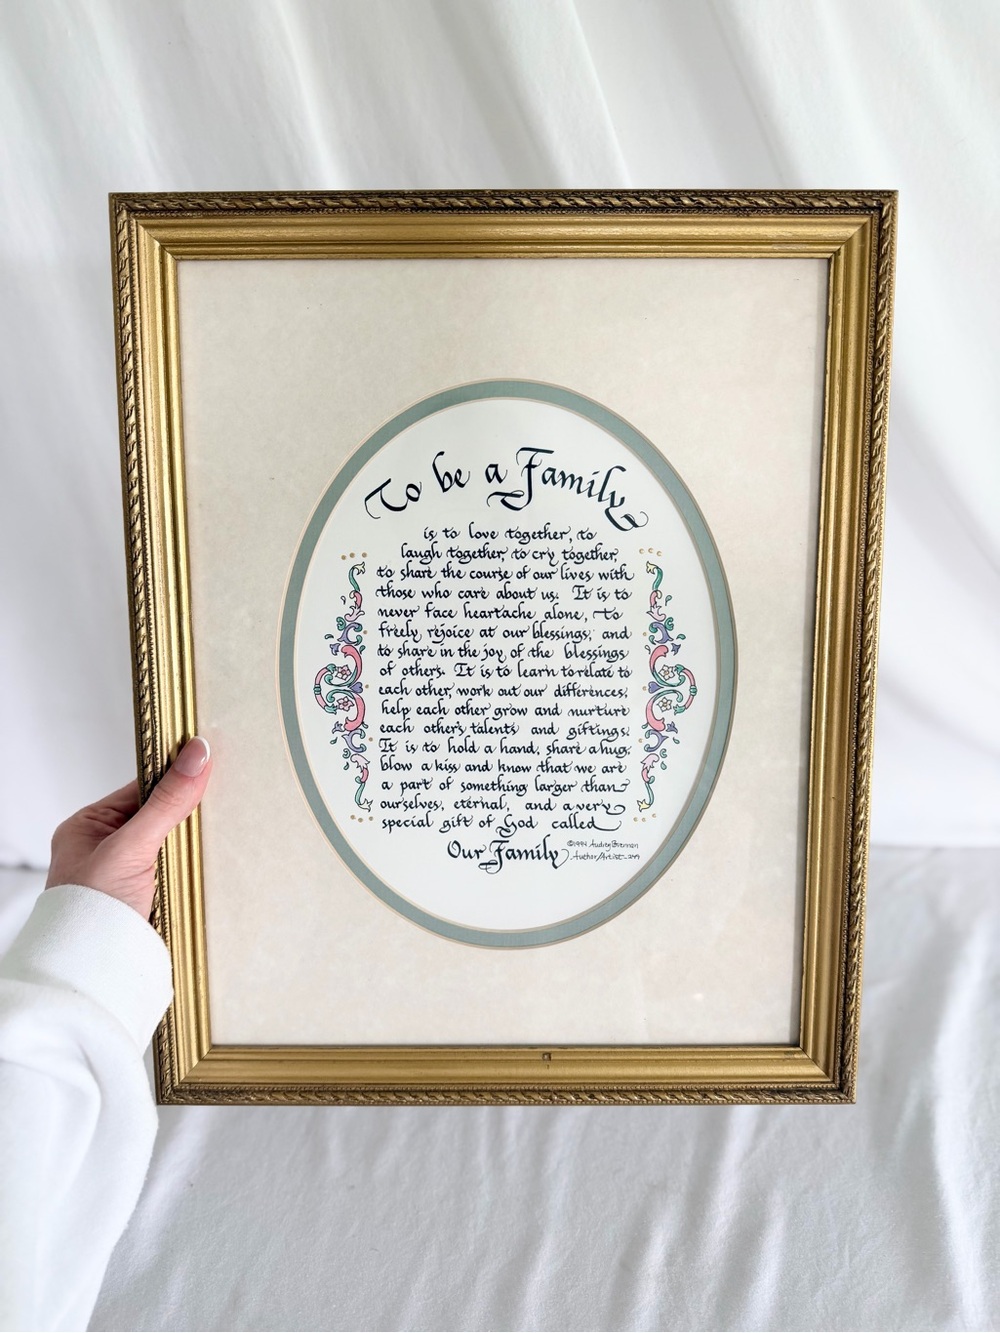 To be a Family
is to love together, to
laugh together, to cry together,
to share the course of our lives with
those who care about us. It is to
never face heartache alone, to
freely rejoice at our blessings, and
to share in the joy of the blessings
of others. It is to learn to relate to
each other, work out our differences,
help each other grow and nurture
each other's talents and giftings.
It is to hold a hand, share a hug,
blow a kiss and know that we are
a part of something larger than
ourselves, eternal, and a very
special gift of God called
Our Family
©1994 Audrey
Author/Artist